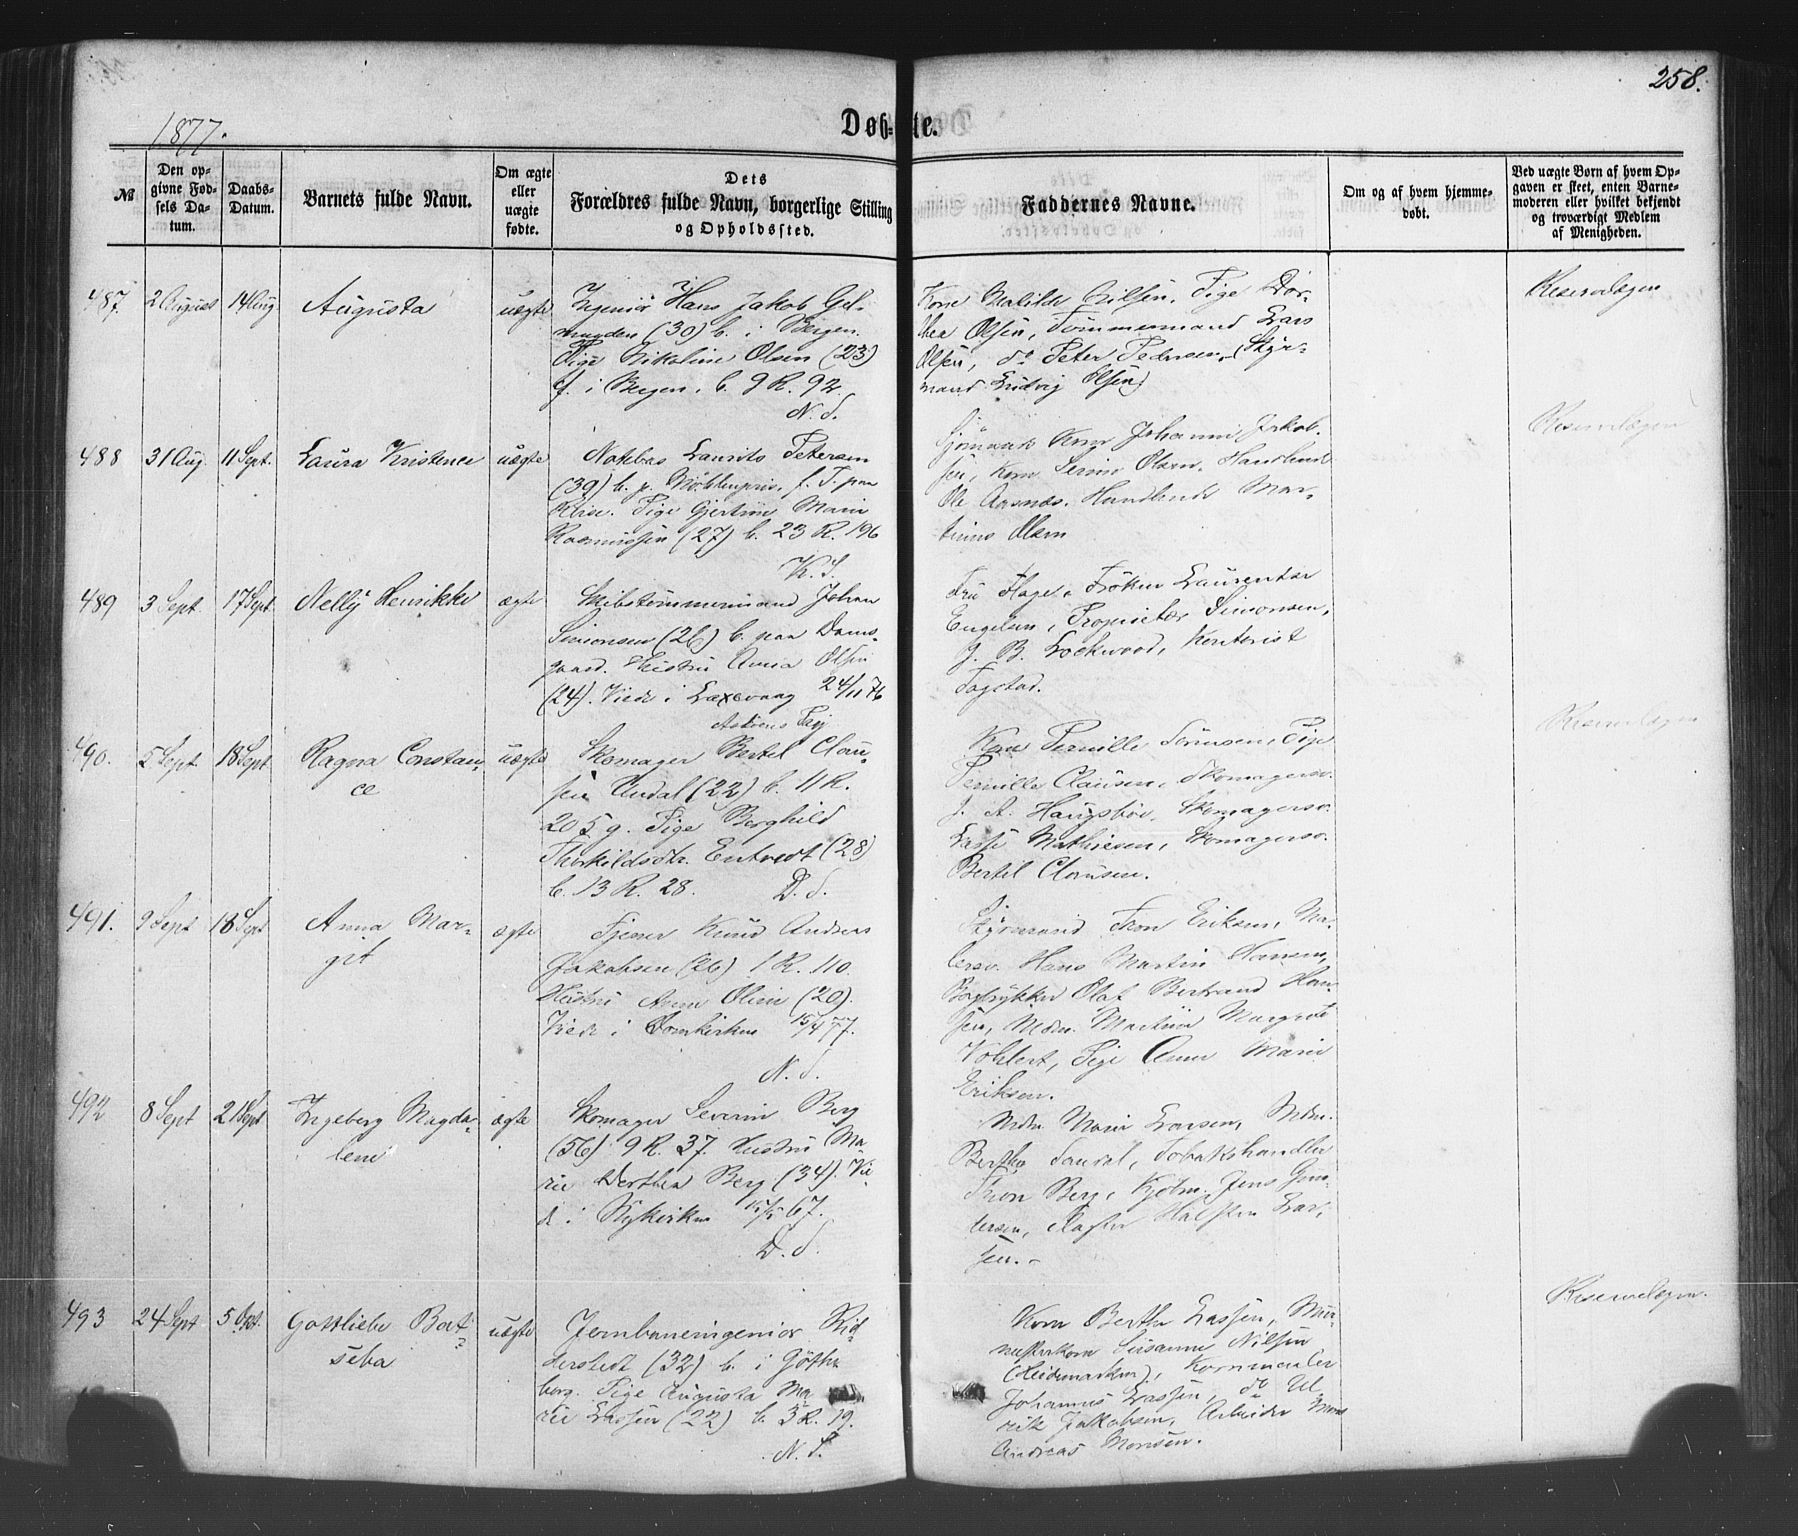 258.
1877.
Døb-te.
№
Den op-
givne Fød-
sels Da-
tum.
Daabs-
Datum.
Barnets fulde Navn.
Om ægte
eller
uægte
fødte.
Dets
Forældres fulde Navn, borgerlige Stilling
og Opholdssted.
Faddernes Navne.
Om og af hvem hjemme-
døbt.
Ved uægte Børn af hvem Op-
gaven er skeet, enten Barne-
moderen eller hvilket bekjendt
og troværdigt Medlem
af Menigheden.
487.
2 August
14 Aug
Augusta
uægte
Ingeniør Hans Jakob Gel-
muyden (30) b. i Bergen.
Pige Nikoline Olsen (23)
f. i Bergen, b. 9 R. 92.
N. S.
Kone Matilde Nilsen, Pige Dor-
thea Olsen, Tømmermand Lars
Olsen, do Peter Pedersen, (Styr-
mand Ludvig Olsen)
Reservelægen
488
31 Aug.
11 Sept.
Laura Kristence
uægte
Laurits Petersen
(39) b. p. Møhlenpris, f. T. paa
Reise. Pige Gjertine Marie
Rasmussen (27) b. 23 R. 196
K. S.
Kone Johanne Jakob-
sen, Kone Serine Olsen, Handlende
Ole Aarsnæs, Handlende Mar-
tinus Olsen
Reservelægen
489
3 Sept.
17 Sept.
Nelly Henrikke
ægte
Skibstømmermand Johan
Simonsen (26) b. paa Dams-
gaard. Hustru Anna Olsen
(24). Viede i Laxevaag 24/11 76
Askøens Prgj
Fru Hage, Frøken Laurentze
Engelsen, Proprietær Simonsen,
J. B. Lockwood, Kontorist
Fagstad.
490.
5 Sept.
18 Sept.
Ragna Constan-
ce
uægte
Skomager Bertel Clau-
sen Undal (22) b. 11 R.
205 g. Pige Berghild
Thorkildsdtr. Entvedt (28)
b. 13 R. 28. D. S.
Kone Pernille Sørensen, Pige
Pernille Clausen, Skomagersv.
J. A. Haugsbøe, Skomagersv.
Lasse Mathiesen, Skomagersv.
Bertel Clausen.
Reservelægen
491.
9 Sept
18 Sept
Anna Mar-
git
ægte
Tjener Knud Andreas
Jakobsen (26) 1 R. 110.
Hustru Anne Oline (20).
Viede i Domkirken 15/4 77.
N. S.
Styrmand Tron Eriksen, Ma-
lersv. Hans Martin Hansen,
Bogtrykker Olaf Bertrand Han-
sen, Mdm. Martine Margrete
Vohlert, Pige Anne Marie
Eriksen.
492
8 Sept
21 Sept
Ingeborg Magda-
lene
ægte
Skomager Severin Berg
(56) 9 R. 37. Hustru Ma-
rie Dorthea Berg (34). Vie-
de i Nykirken 67.
D. S.
Mdm Marie Larsen, Mdm.
Berthe Sandal, Tobakshandler
Tron Berg, Kjøbm. Jens Gun-
dersen, Halsten Lar-
sen. -
493
24 Sept
5 Okt.
Gottliebe Bat-
seba
uægte
Jernbaneingeniør Rid-
derstedt (32) b. i Gøthe-
borg. Pige Augusta Ma-
rie Lassen (22) b. 3 R. 19.
N. S.
Kone Berthe Lassen, Mur-
mesterkone Susanne Nilsen
(Heidemarken), Kornmaaler
Johannes Lassen, do Ul-
rik Jakobsen, Arbeider Mons
Andreas Monsen.
Reservelægen.